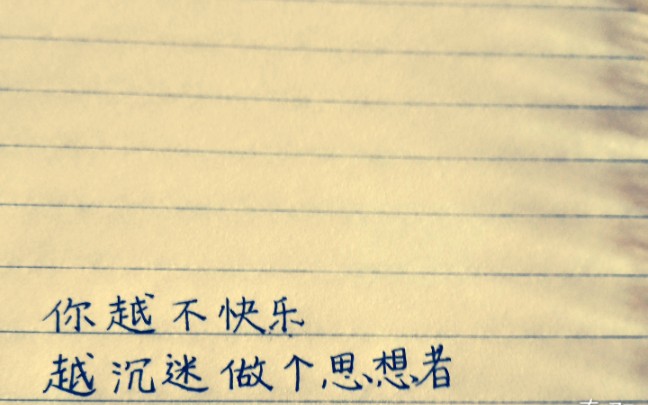 你越不快乐
越沉迷做个思想者